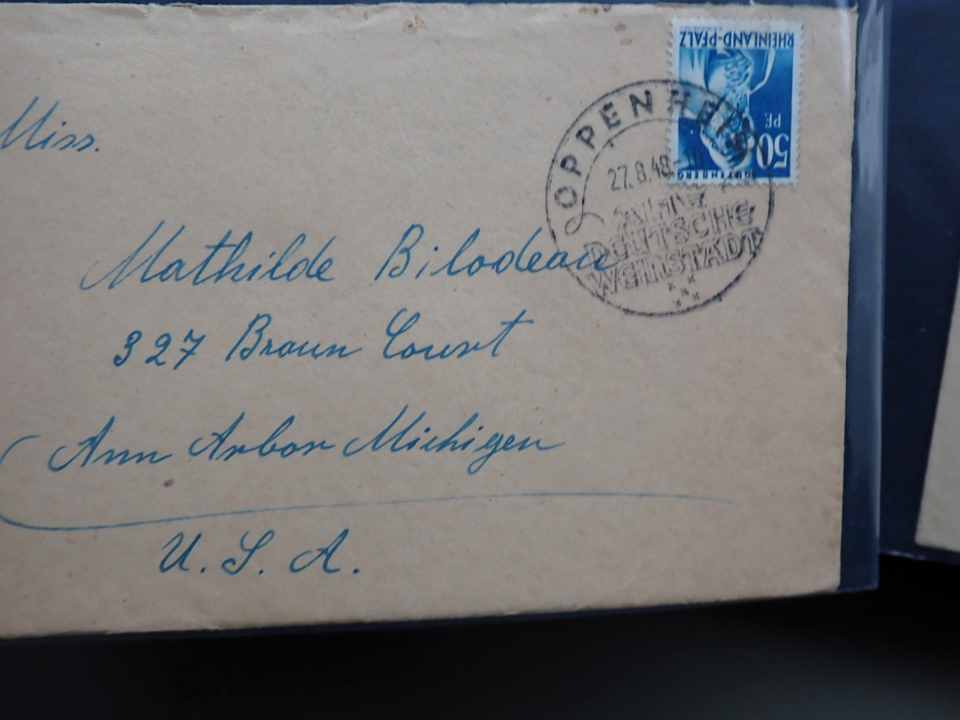 Miss.
Mathilde Bilodeau
327 Braun Court
Ann Arbor Michigen
U. S. A.
OPPENHEIM
27.8.48
ALTE
DEUTSCHE
WEINSTADT
RHEINLAND-PFALZ
50
PF.
GUTENBERG